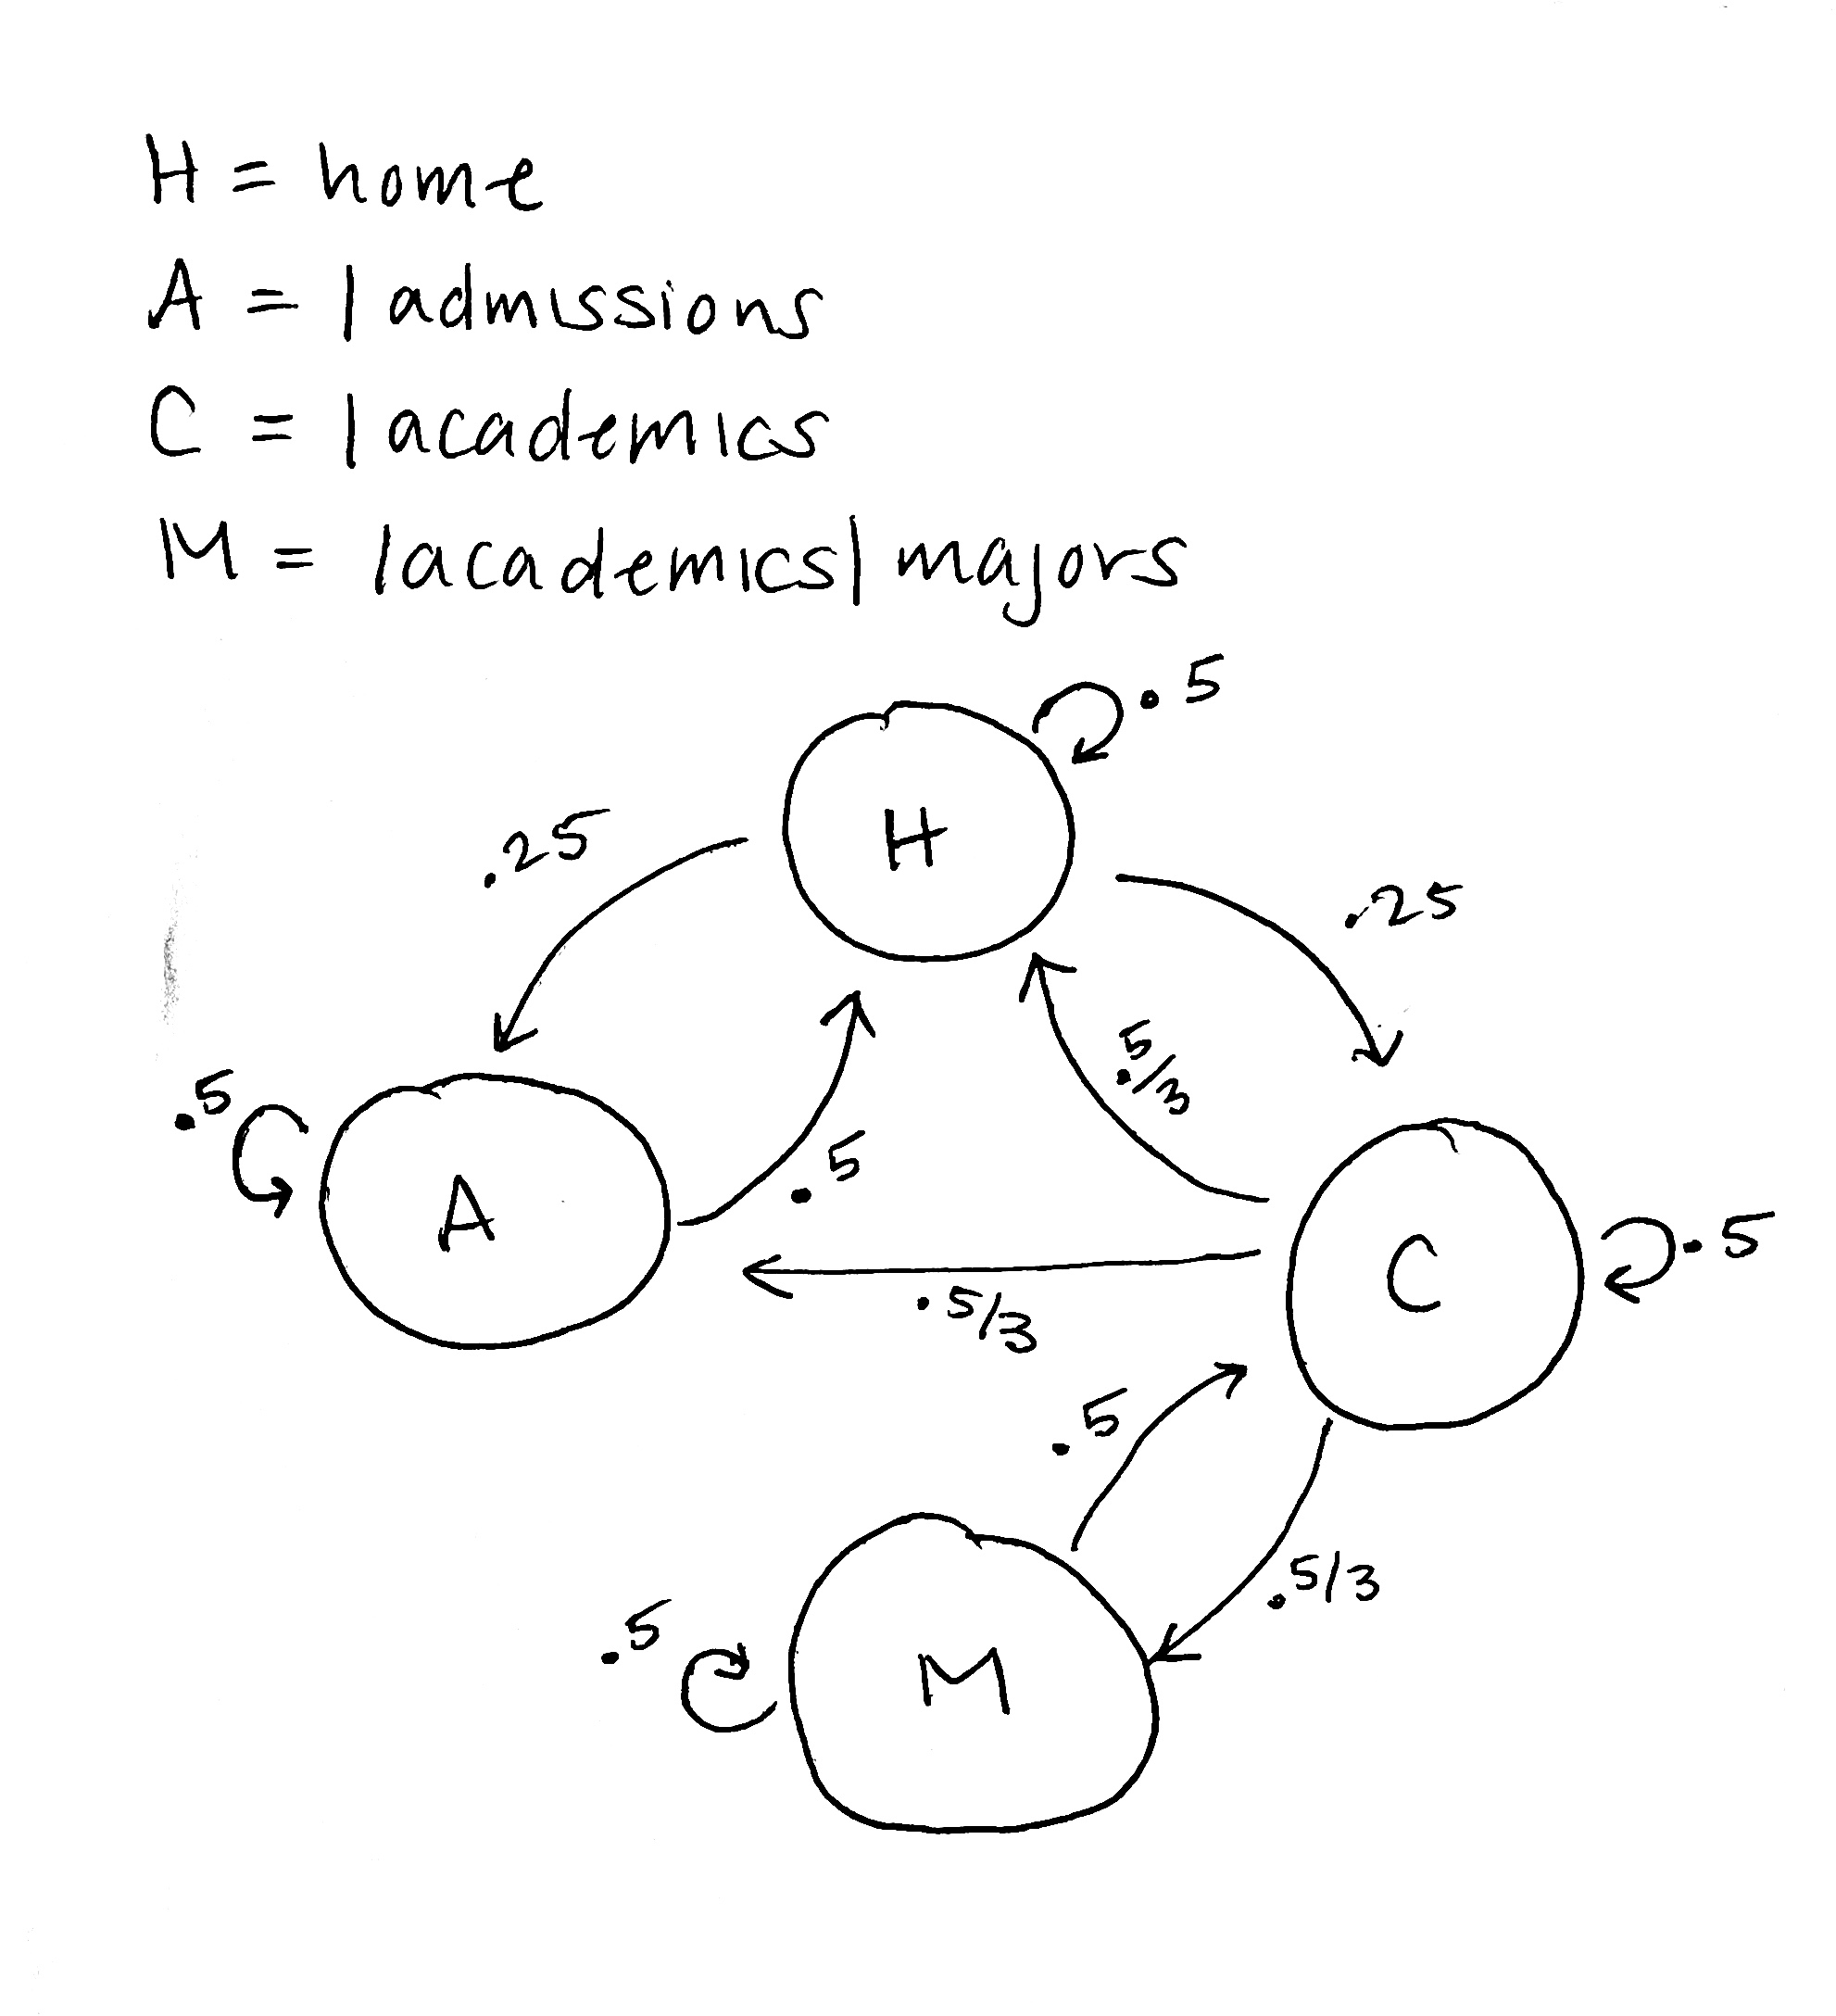 H = home
A = /admissions
C = /academics
M = /academics/majors
.5
H
.25
.25
.5/3
.5
A
.5
C
.5
.5/3
.5
.5/3
.5
M